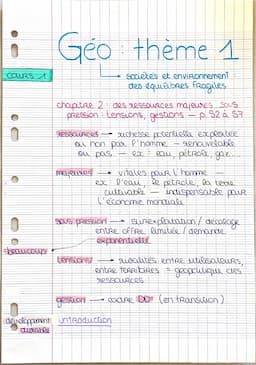 Géo : thème 1
COURS 1
→ sociétés et environnement :
des équilibres fragiles
chapitre 2 : des ressources majeures sous
pression : tensions, gestions — p. 52 à 57
ressources → richesse potentielle exploitée
ou non par l'homme — renouvelable
ou pas — ex : eau, pétrole, gaz...
majeures → vitales pour l'homme —
ex. D'eau, le pétrole, la terre
cultivable — indispensable pour
l'économie mondiale
sous pression → surexploitation / décalage
entre offre limitée / demande
exponentielle
=beaucoup
tensions → rivalités entre utilisateurs,
entre territoires = géopolitique des
ressources
gestion → cadre DD (en transition)
développement
durable
introduction